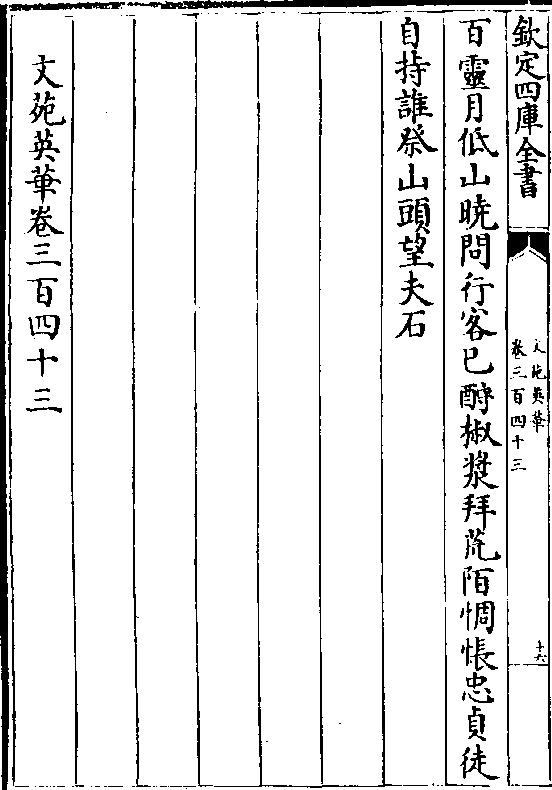 欽定四庫全書
文苑英華
卷三百四十三
十六
百靈月低山曉問行客已酹椒漿拜荒陌惆悵忠貞徒
自持誰祭山頭望夫石
文苑英華卷三百四十三